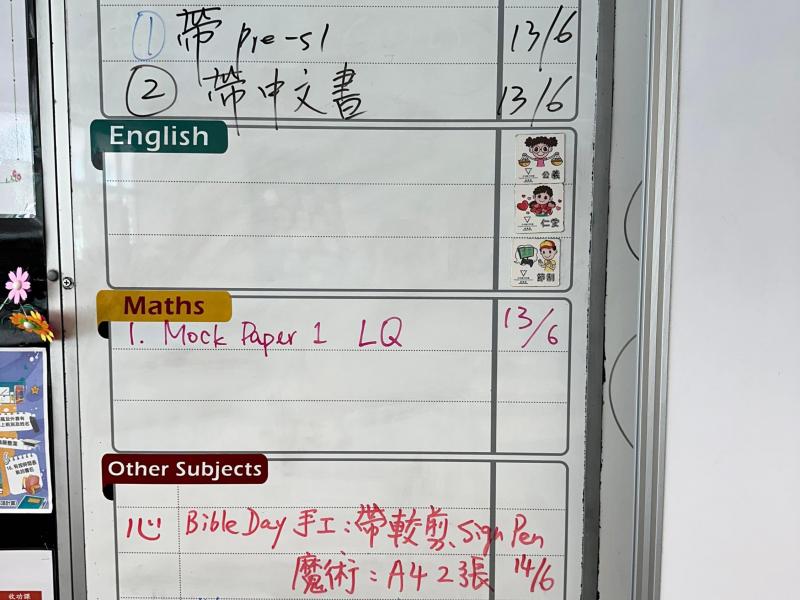 ① 帶 pre-s1 13/6
② 帶中文書 13/6
English
公義
仁愛
節制
Maths
1. Mock Paper 1 LQ 13/6
Other Subjects
心 Bible Day 手工：帶較剪、Sign Pen
魔術：A4 2張 14/6
收功課